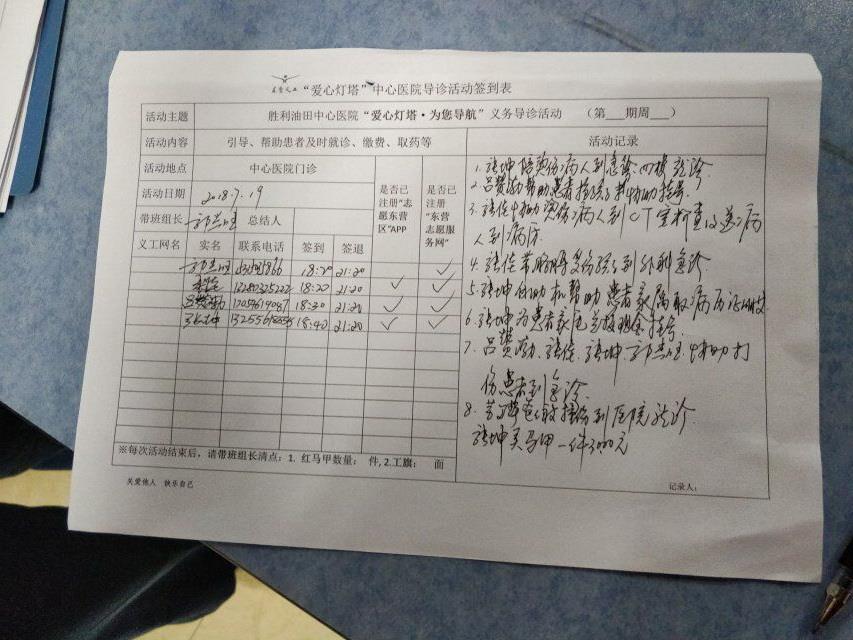 “爱心灯塔”中心医院导诊活动签到表
活动主题 胜利油田中心医院“爱心灯塔·为您导航”义务导诊活动 （第___期周___）
活动内容 引导、帮助患者及时就诊、缴费、取药等 活动记录
活动地点 中心医院门诊
活动日期 2018.7.19
是否已注册“志愿东营区”APP
是否已注册“东营志愿服务网”
带班组长 总结人
义工网名 实名 联系电话 签到 签退
18:20 21:20 ✓
18:20 21:20 ✓ ✓
吕赞勋 18:30 21:20 ✓ ✓
张坤 18:40 21:20 ✓ ✓
1. 张坤陪烫伤病人到急诊四楼就诊
2. 吕赞勋帮助患者 协助挂号
3. 张佳协助 病人到CT室检查及送病
人到病床
4. 张佳带胳膊受伤孩子到外科急诊
5. 张坤 帮助患者家属取病历
6. 张坤为患者家属 挂号
7. 吕赞勋、张佳、张坤 协助打
伤患者到急诊
8. 撞伤到医院就诊
张坤买马甲一件
※每次活动结束后，请带班组长清点：1. 红马甲数量： 件, 2.工旗： 面
关爱他人 快乐自己
记录人：